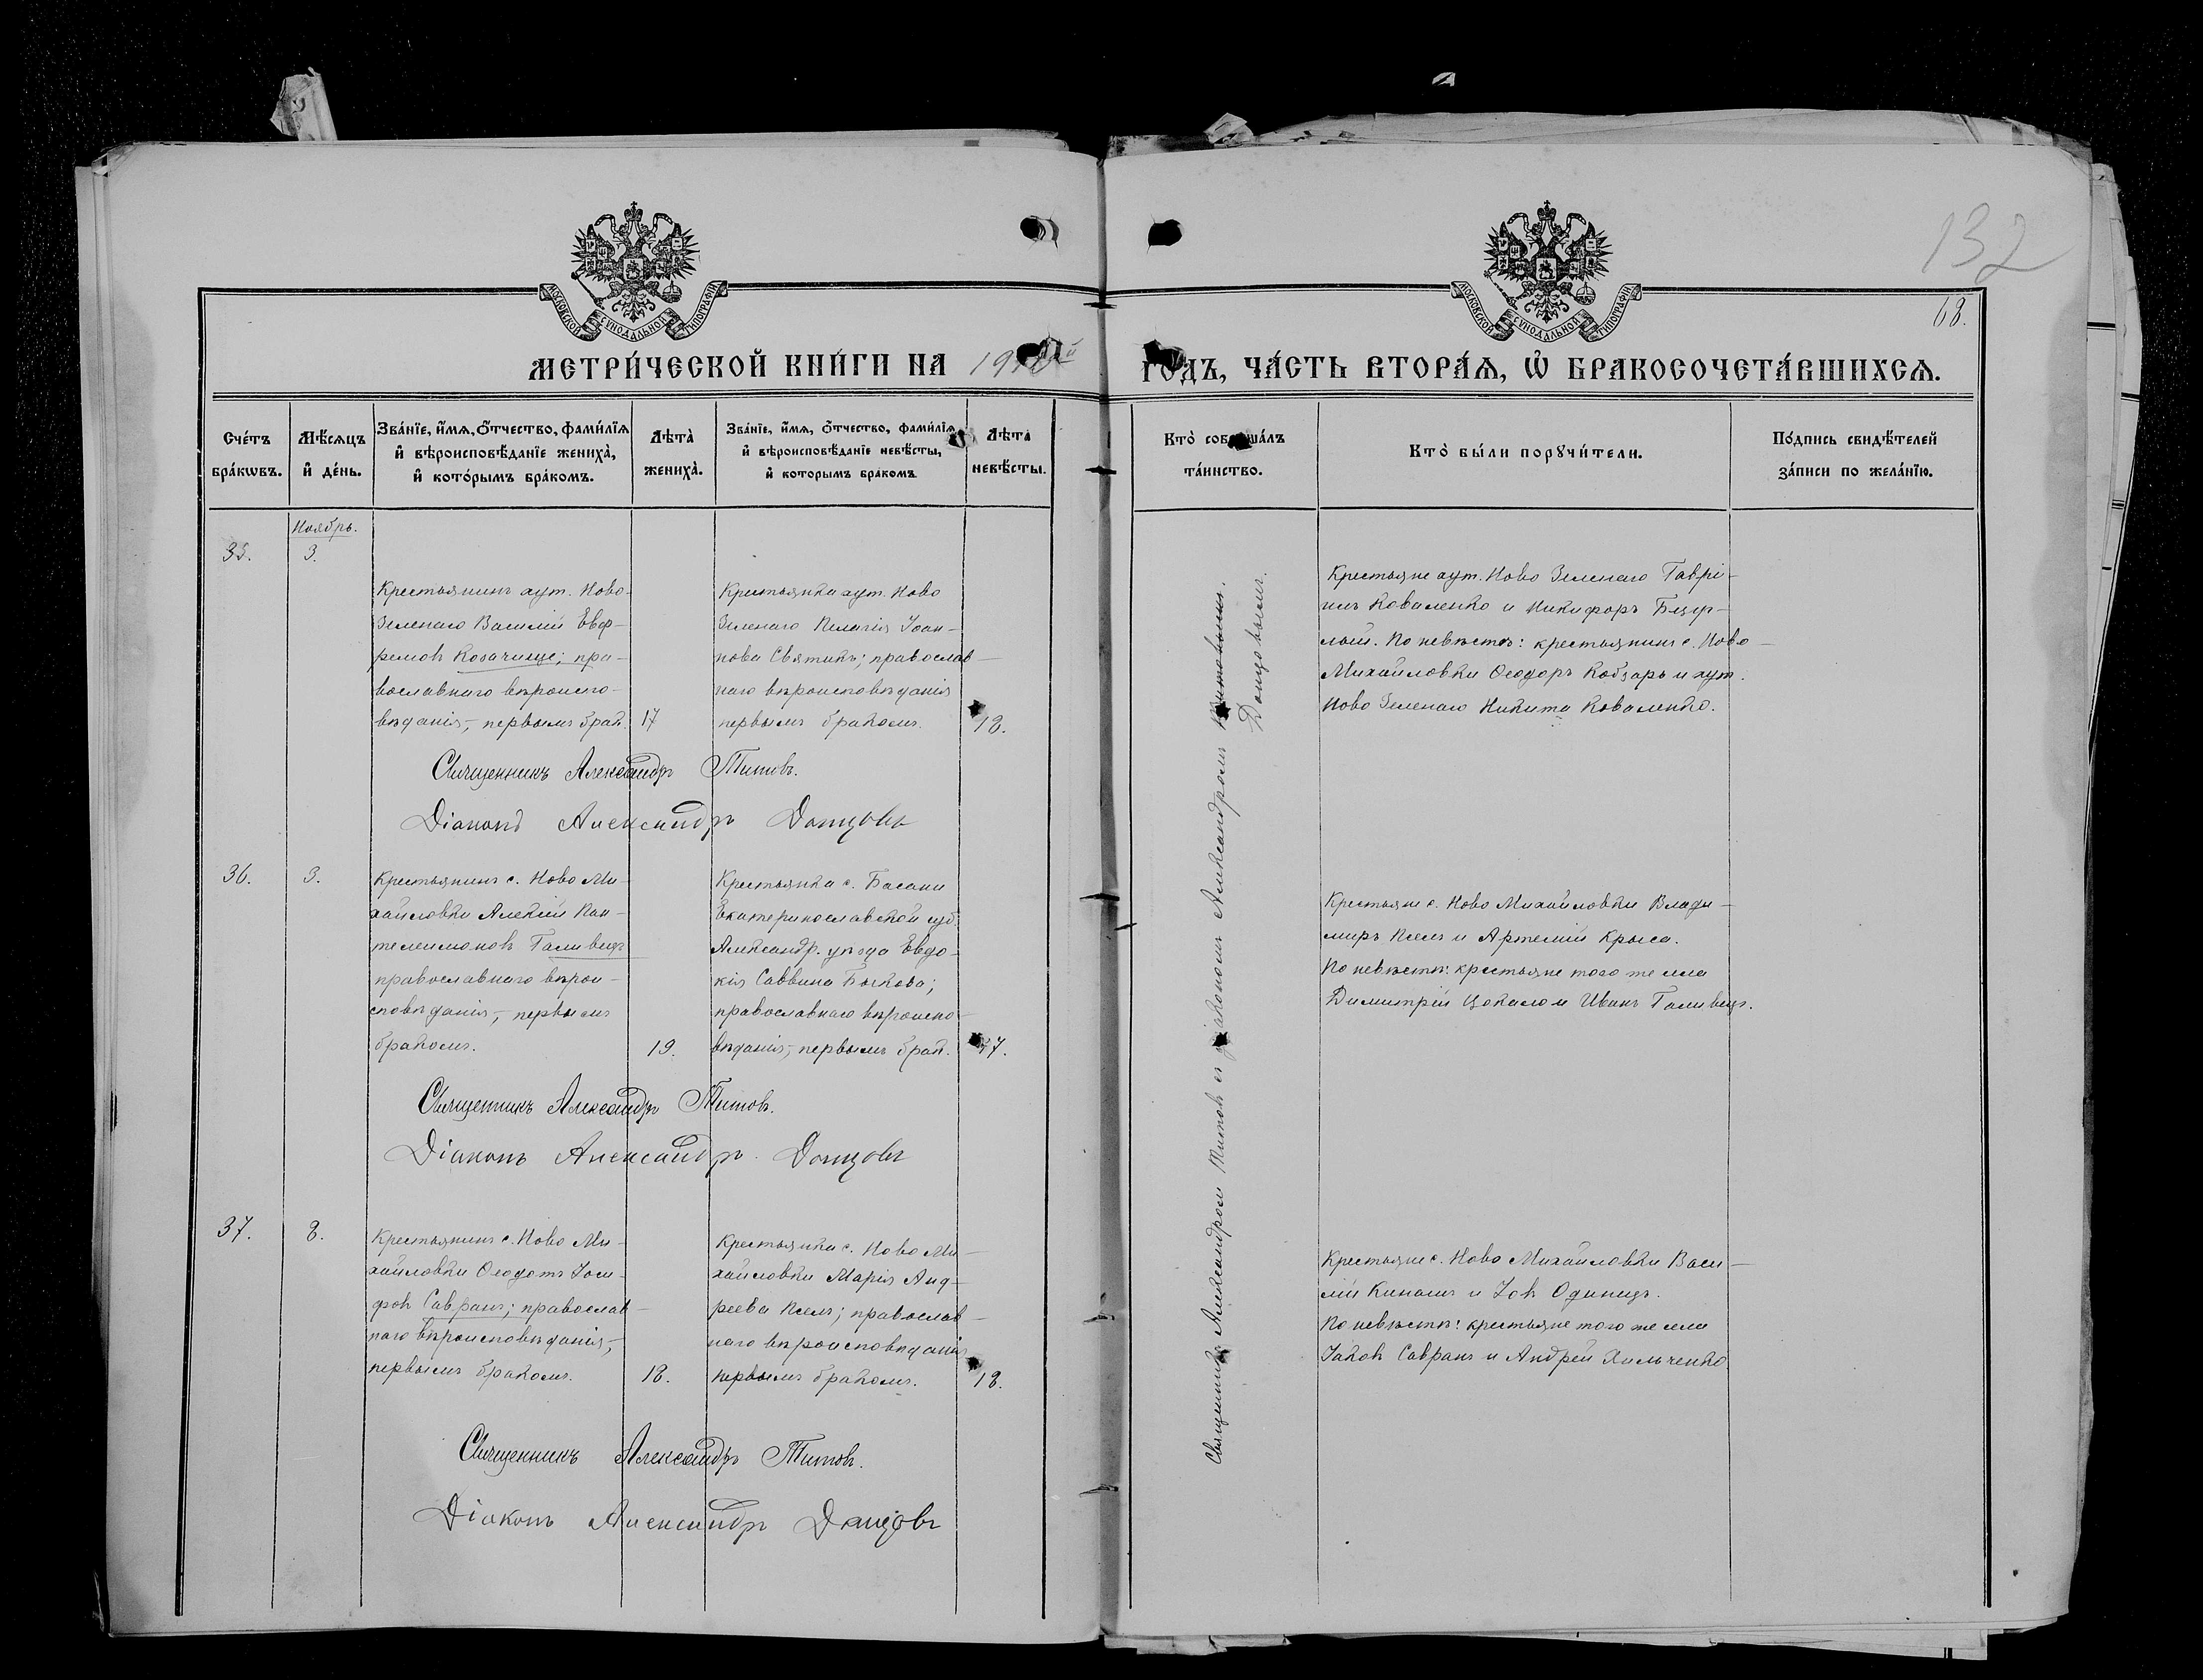 132
68.
МОСКОВСКОЙ СУНОДАЛЬНОЙ ТИПОГРАФІИ
МОСКОВСКОЙ СУНОДАЛЬНОЙ ТИПОГРАФІИ
МЕТРИ́ЧЕСКОЙ КНИ́ГИ НА
ГОДЪ, ЧА́СТЬ ВТОРА́Ѧ, Ѡ҆ БРАКОСОЧЕТА́ВШИХСѦ.
Сче́тъ бра́кѡвъ.
Мѣ́сѧцъ и҆ де́нь.
Зва́нїе, и҆́мѧ, ѻ҆́тчество, фами́лїѧ и҆ вѣроисповѣ́данїе жениха̀, и҆ кото́рымъ бра́комъ.
Лѣта̀ жениха̀.
Зва́нїе, и҆́мѧ, ѻ҆́тчество, фами́лїѧ и҆ вѣроисповѣ́данїе невѣ́сты, и҆ которымъ бра́комъ
Лѣта̀ невѣ́сты.
Кто̀ соверша́лъ та́инство.
Кто̀ бы́ли порꙋчи́тели.
По́дпись свидѣ́телей за́писи по жела́нїю.
Ноябрь.
35.
3.
Крестьянинъ хут. Ново-
Зеленаго Василій Евф-
ремовъ Козачище; пра-
вославнаго вѣроиспо-
вѣданія, первымъ брак.
17
Крестьянка хут. Ново
Зеленаго Пелагія Іоан-
нова Святикъ; православ-
наго вѣроисповѣданія
первымъ бракомъ.
18.
Крестьяне хут. Ново Зеленаго Гаврі-
илъ Коваленко и Никифоръ
По невѣстѣ: крестьянинъ с. Ново-
Михайловки Ѳеодоръ Кобзарь и хут.
Ново Зеленаго Никита Коваленко.
Священникъ Александръ Титовъ.
Діаконъ Александръ Донцовъ
36.
3.
Крестьянинъ с. Ново Ми-
хайловки Алексій Пан-
телеимоновъ Галивецъ
православнаго вѣрои-
сповѣданія, первымъ
бракомъ.
19.
Крестьянка с. Басани
Екатеринославской губ.
Александр. уѣзда Евдо-
кія Саввина Быкова;
православнаго вѣроиспо-
вѣданія, первымъ брак.
17.
Крестьяне с. Ново Михайловки Влади-
миръ Псёлъ и Артемій Крыса.
По невѣстѣ: крестьяне того же села
Димитрій Цокало и Иванъ Галивецъ.
Священникъ Александръ Титовъ.
Діаконъ Александръ Донцовъ
37.
8.
Крестьянинъ с. Ново Ми-
хайловки Ѳеодотъ Іоси-
фовъ Савранъ; православ-
наго вѣроисповѣданія,
первымъ бракомъ.
18.
Крестьянка с. Ново Ми-
хайловки Марія Анд-
реева Псёлъ; православ-
наго вѣроисповѣданія
первымъ бракомъ.
18.
Крестьяне с. Ново Михайловки Васи-
лій Кинашъ и Іовъ Одинецъ.
По невѣстѣ: крестьяне того же села
Іаковъ Савранъ и Андрей Хильченко
Священникъ Александръ Титовъ.
Діаконъ Александръ Донцовъ
Донцовымъ.